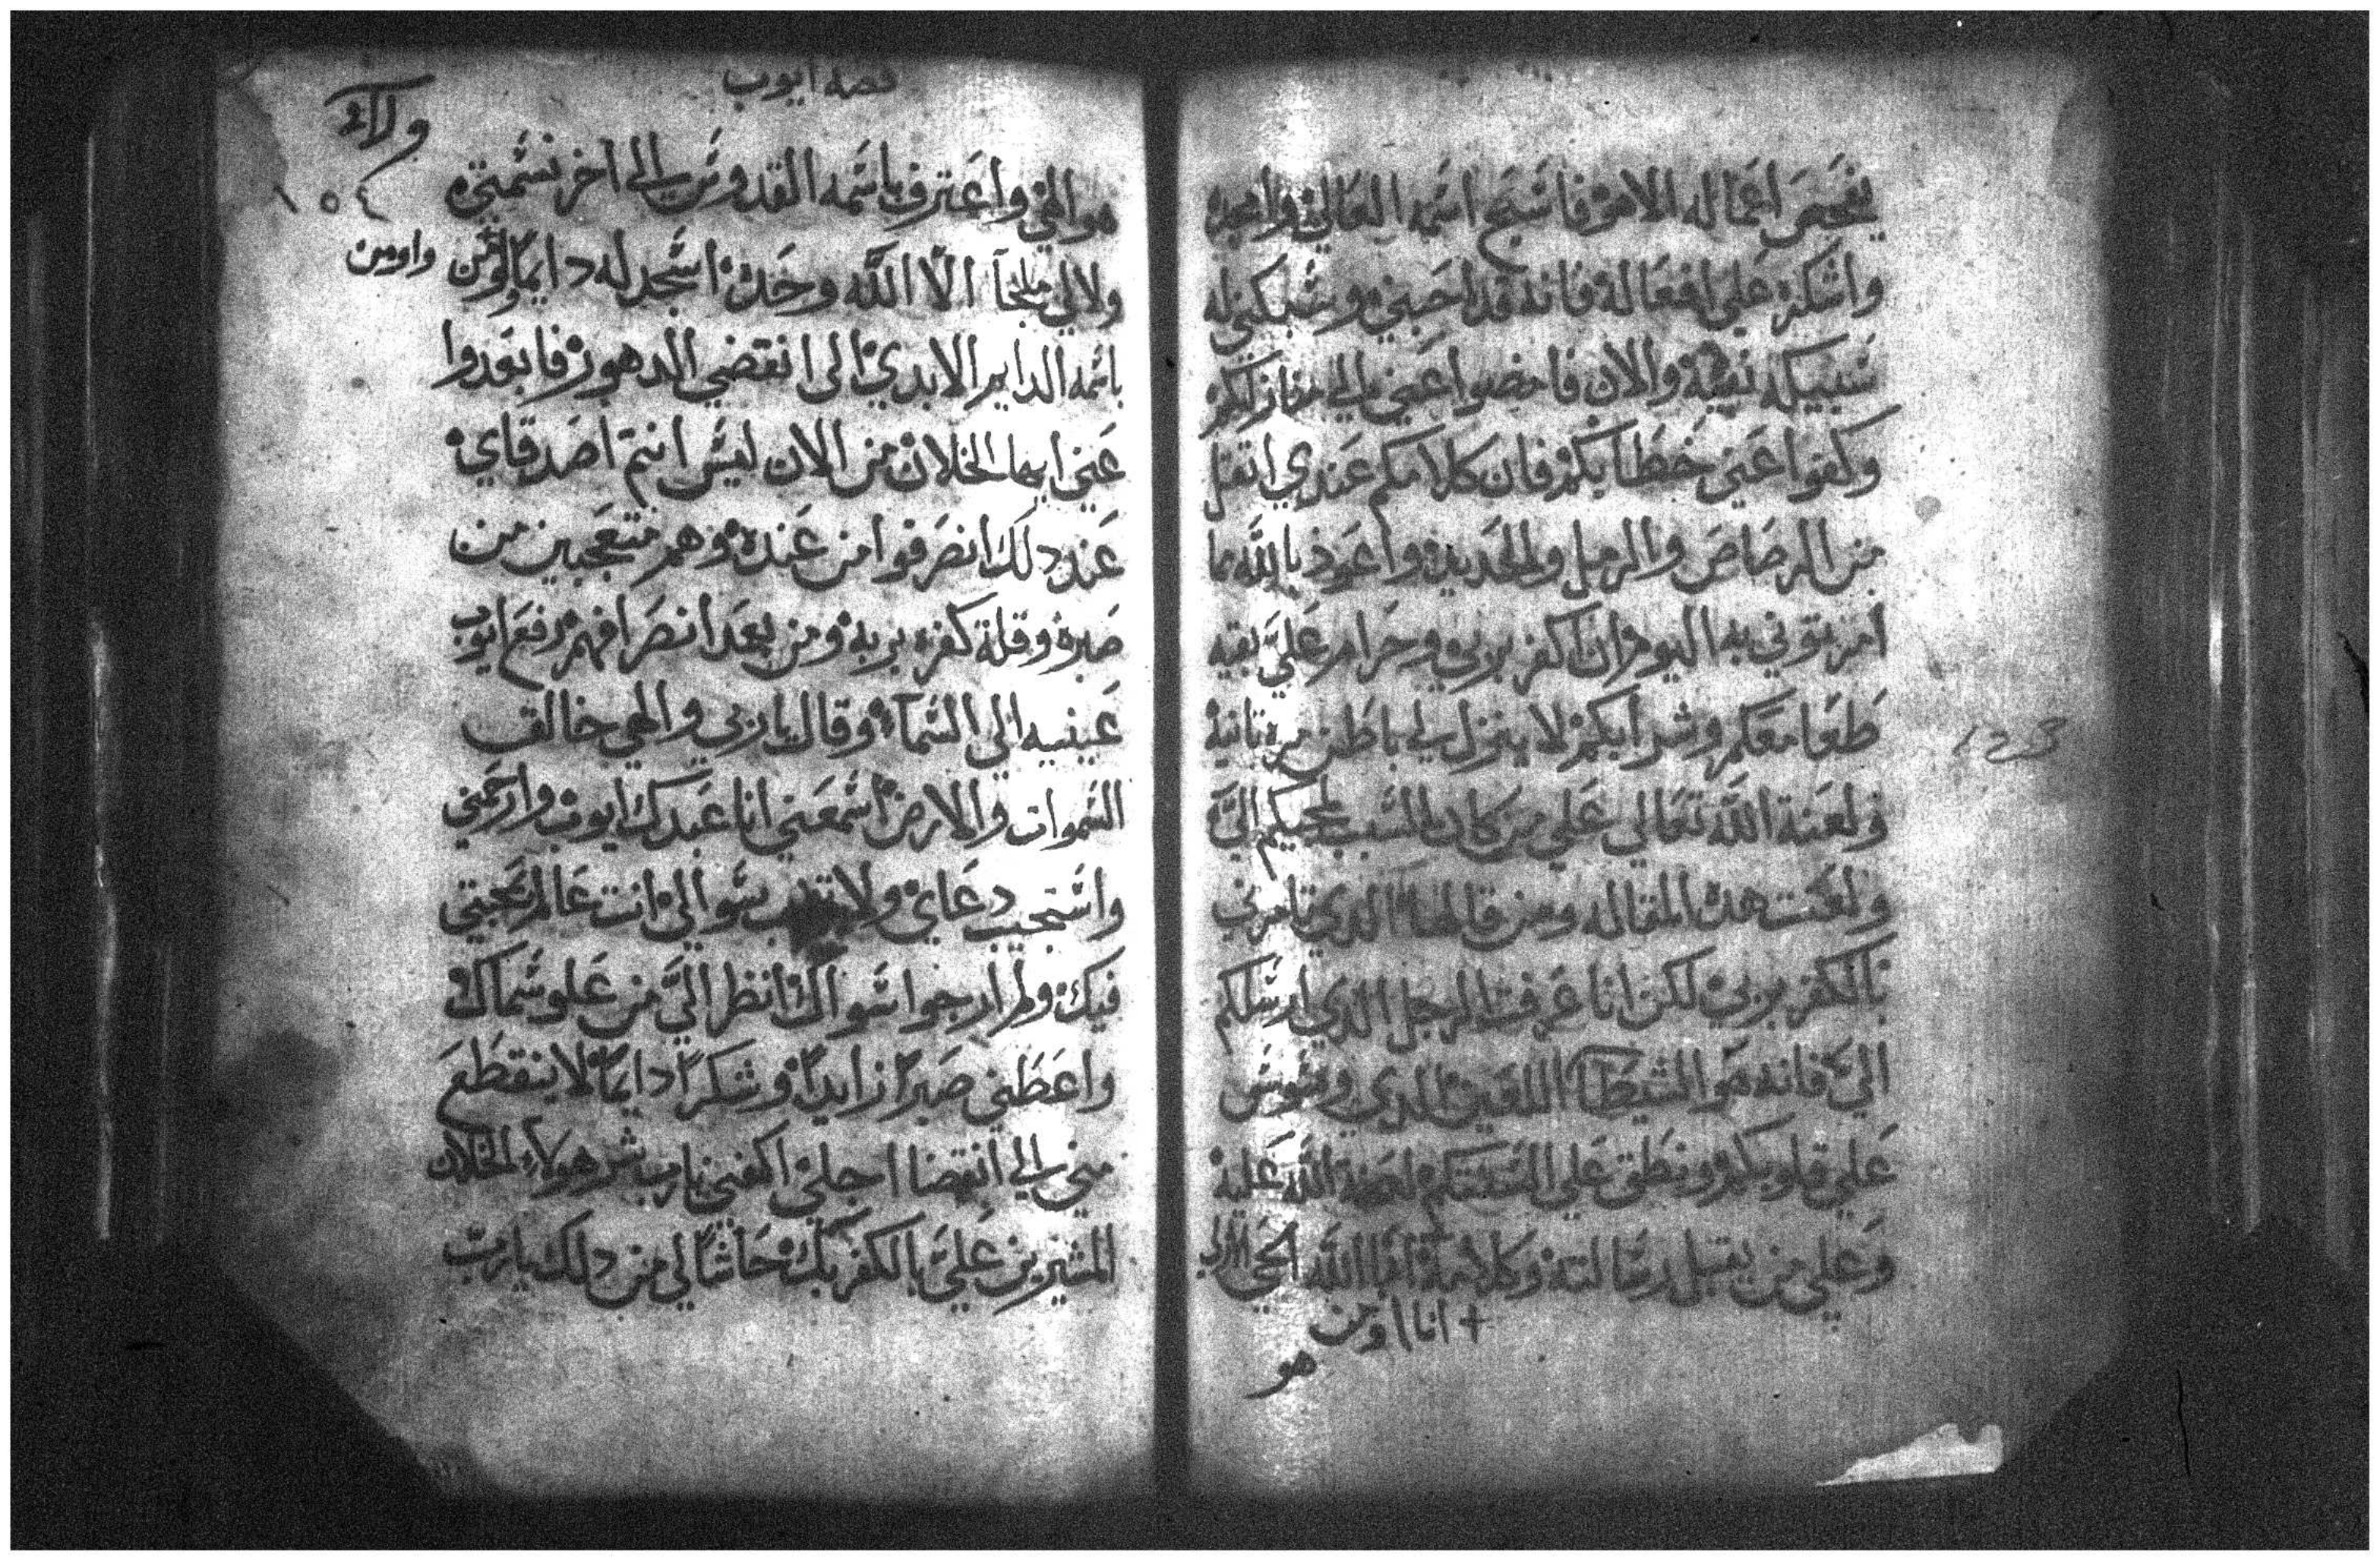 يفحص اعماله الا هو فاسبح اسمه العالي وامجده
واشكره علي افعاله فانه قد احبني وسبكني له
سبيكه نقية والان فامضوا عني الي منازلكم
وكفوا عني خطابكم فان كلامكم عندي اتقل
من الرصاص والرمل والحديد واعود بالله مما
امرتوني به اليوم ان اكفر بربي وحرام علي بقيه
طعامكم وشرابكم لا ينزل لي باطن مرة تانية
ولعنة الله تعالي علي من كان السبب لمجيكم الي
ولعنت هده المقاله ومن قالها الدي تامرني
بالكفر بربي لكن انا عرفت الرجل الدي ارسلكم
الي فانه هو الشيطان اللعين الدي وسوس
علي قلوبكم ونطق علي السنتكم لعنة الله عليه
وعلي من يقبل رسالته وكلامه انا الله الحي
+ انا اومن
هو
قصة ايوب
ولاء
١٥٤
هو الهي واعترف باسمه القدوس الي اخر نسمتي
ولا لي ملجأ الا الله وحده اسجد له دايما واومن
واومن
باسمه الدايم الابدي الى انقضي الدهور فابعدوا
عني ايها الخلان من الان ليس انتم اصدقاي
عند دلك انصرفوا من عنده وهم متعجبين من
صبره وقلة كفره بربه ومن بعد انصرافهم رفع ايوب
عينيه الي السماء وقال يا ربي والهي خالق
السموات والارض اسمعني انا عبدك ايوب وارحمني
واستجيب دعاي ولا بسوالي انت عالم بمحبتي
فيك ولم ارجوا سواك انظر الي من علو سماك
واعطني صبرا زايدا وشكرا دايما لا ينقطع
مني الي انقضا اجلي اكفني يارب شر هولاء الخلان
المشيرين علي بالكفر بك حاشا لي من دلك يا رب